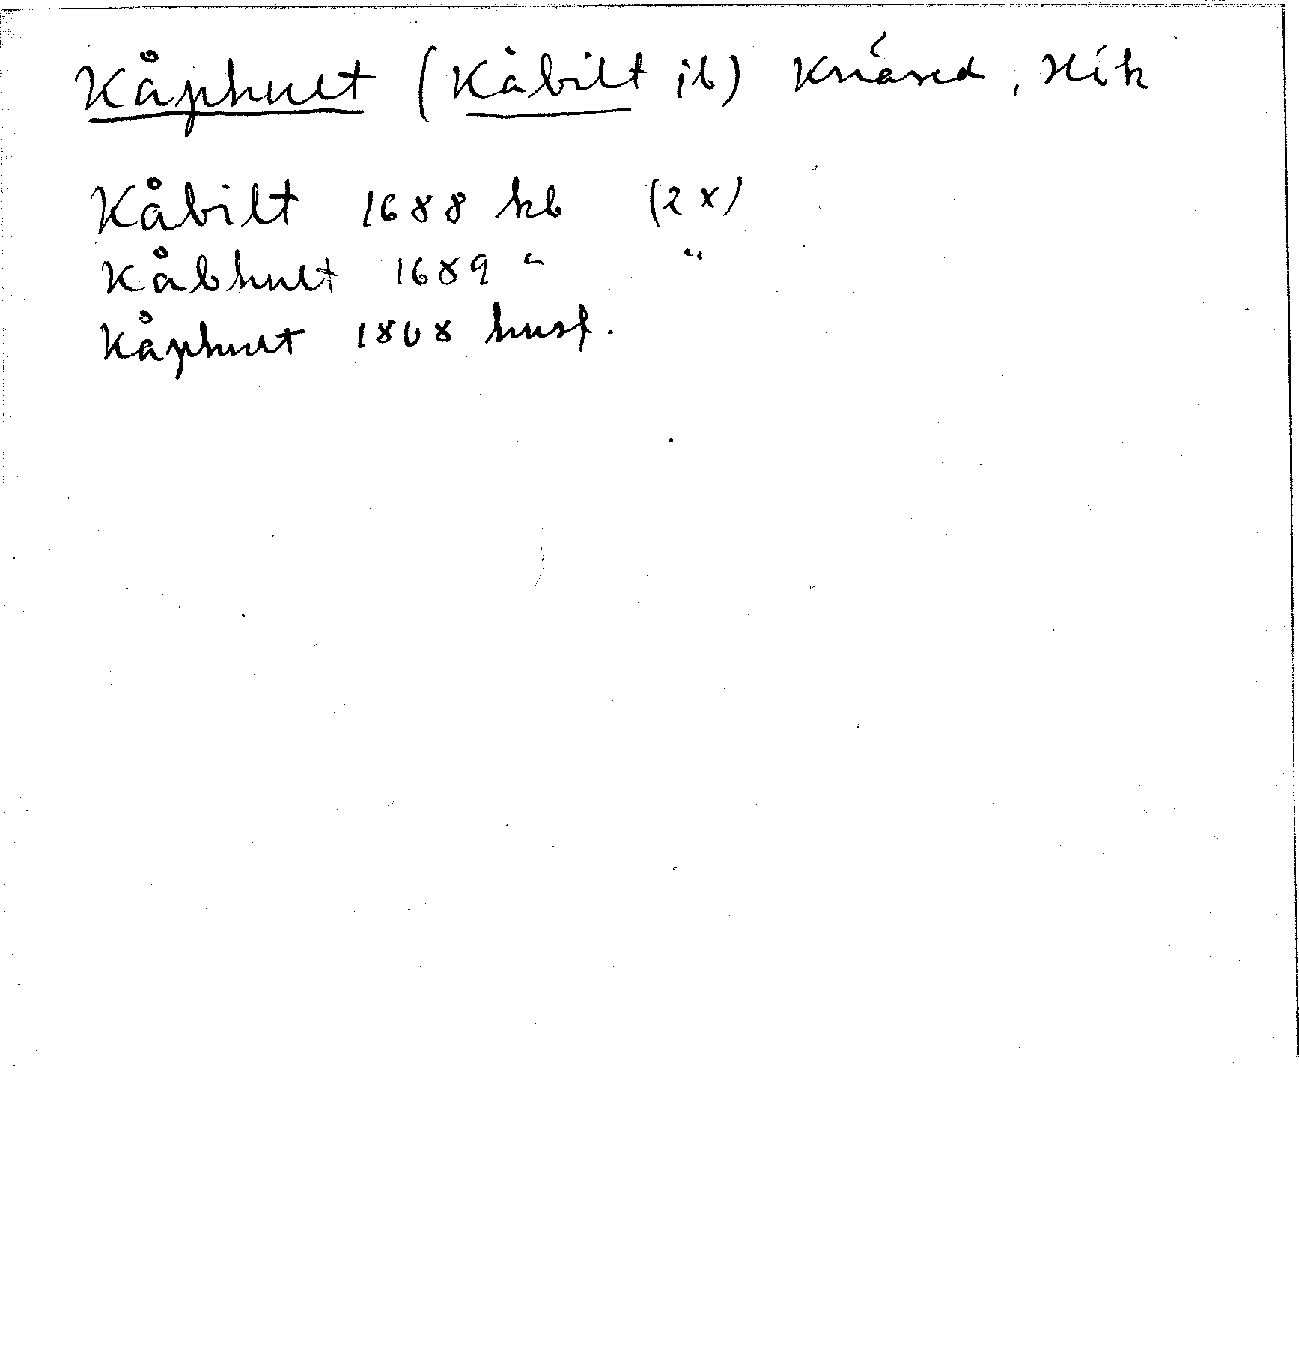 Kåphult (Kåbilt jb) Knäred, Hök
Kåbilt 1688 kb (2 x)
Kåbhult 1689 " "
Kåphult 1808 husf.